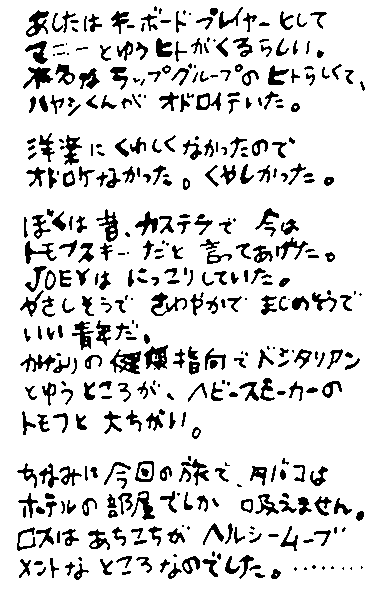 あしたは キーボードプレイヤーとして
マニーとゆうヒトがくるらしい。
有名な ラップグループの ヒトらしくて、
ハヤシくんが オドロイていた。
洋楽に くわしくなかったので
オドロケなかった。くやしかった。
ぼくは 昔、カステラで 今は
トモフスキーだと 言ってあげた。
JOEYは にっこりしていた。
やさしそうで さわやかで まじめそうで
いい 青年だ。
かなりの 健康指向で ベジタリアン
とゆうところが、ヘビースモーカーの
トモフと 大ちがい。
ちなみに 今回の旅で、タバコは
ホテルの 部屋でしか 吸えません。
ロスは あちこちが ヘルシームーブ
メントな ところなのでした。………